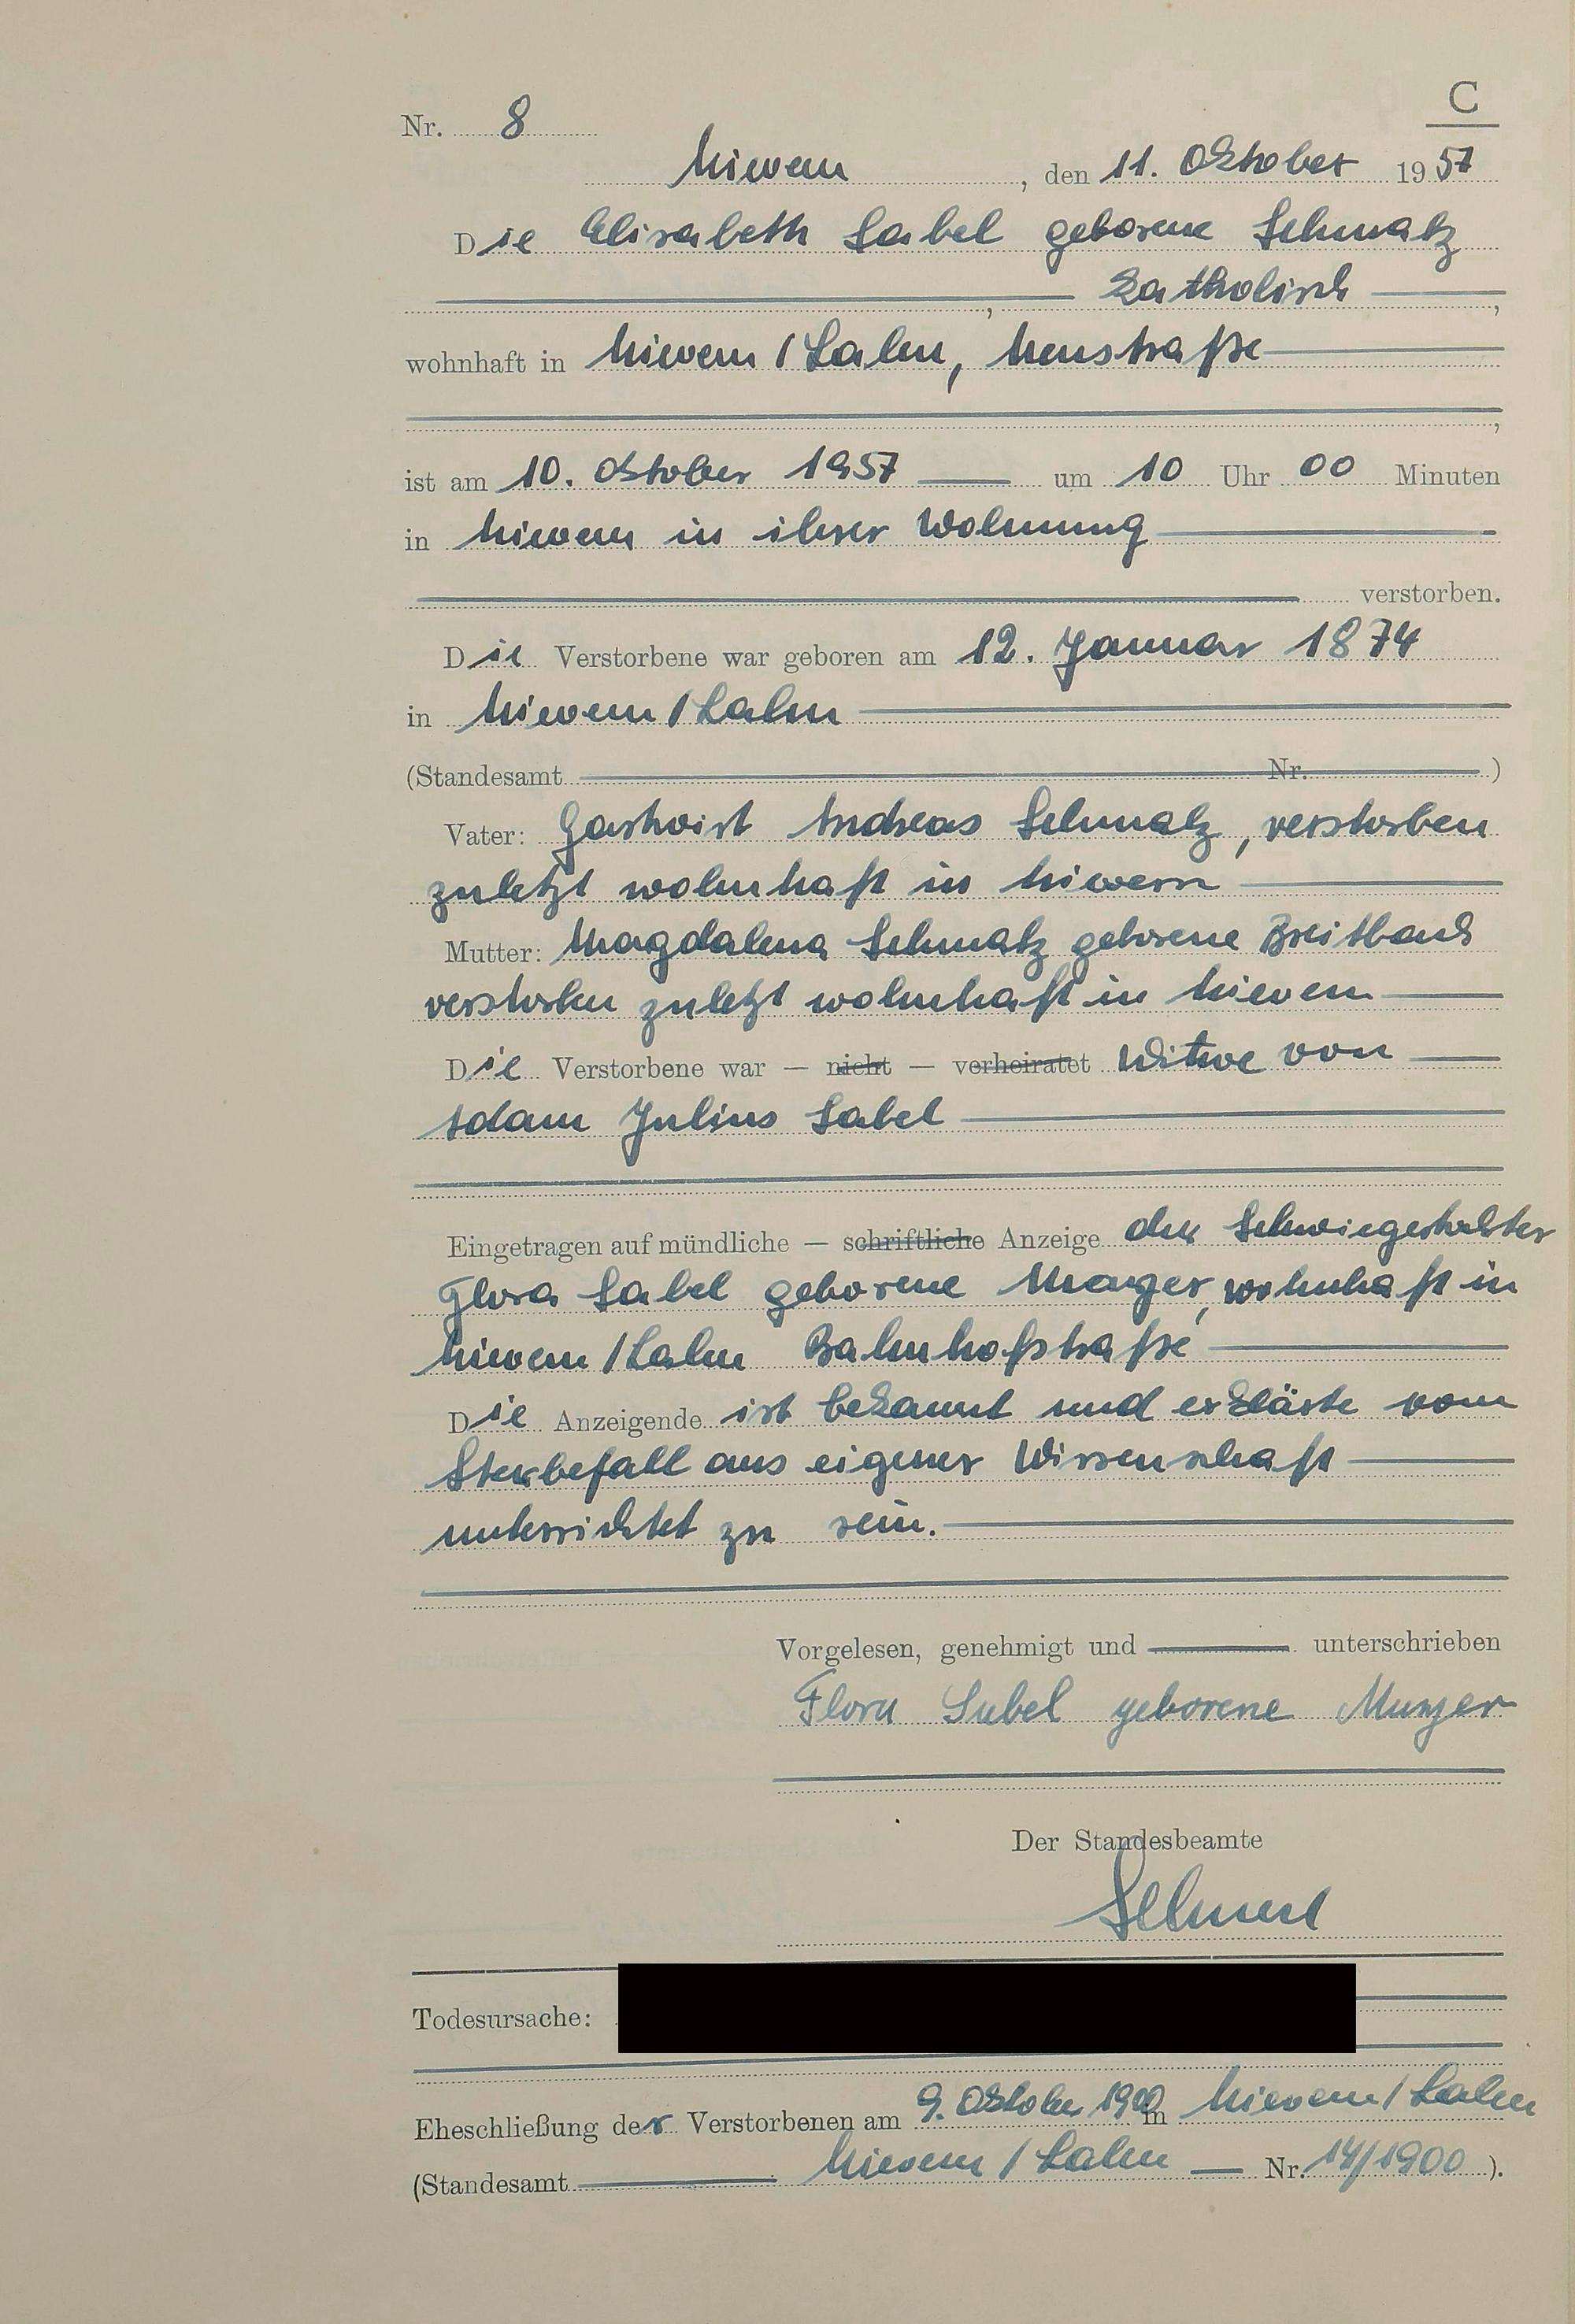 C
Nr. 8
Nievern, den 11. Oktober 1957
Die Elisabeth Sabel geborene Schmalz
, katholisch,
wohnhaft in Nievern / Lahn, Neustraße
,
ist am 10. Oktober 1957 um 10 Uhr 00 Minuten
in Nievern in ihrer Wohnung
verstorben.
Die Verstorbene war geboren am 12. Januar 1874
in Nievern / Lahn
(Standesamt Nr. )
Vater: Gastwirt Andreas Schmalz, verstorben
zuletzt wohnhaft in Nievern
Mutter: Magdalena Schmalz geborene Breitbach
verstorben zuletzt wohnhaft in Nievern
Die Verstorbene war — nicht — verheiratet Witwe von
Adam Julius Sabel
Eingetragen auf mündliche — schriftliche Anzeige der Schwiegertochter
Flora Sabel geborene Manger, wohnhaft in
Nievern / Lahn Bahnhofstraße
Die Anzeigende ist bekannt und erklärte vom
Sterbefall aus eigener Wissenschaft
unterrichtet zu sein.
Vorgelesen, genehmigt und unterschrieben
Flora Sabel geborene Manger
Der Standesbeamte
Todesursache:
Eheschließung der Verstorbenen am 9. Oktober 1900 in Nievern / Lahn
(Standesamt Nievern / Lahn Nr. 14/1900 ).